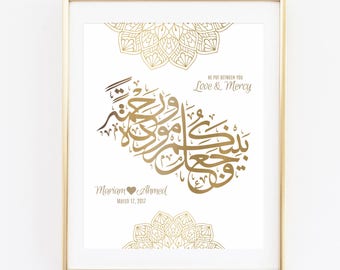 HE PUT BETWEEN YOU
Love & Mercy
وَجَعَلَ بَيْنَكُم مَّوَدَّةً وَرَحْمَةً
Mariam Ahmed
MARCH 12, 2017